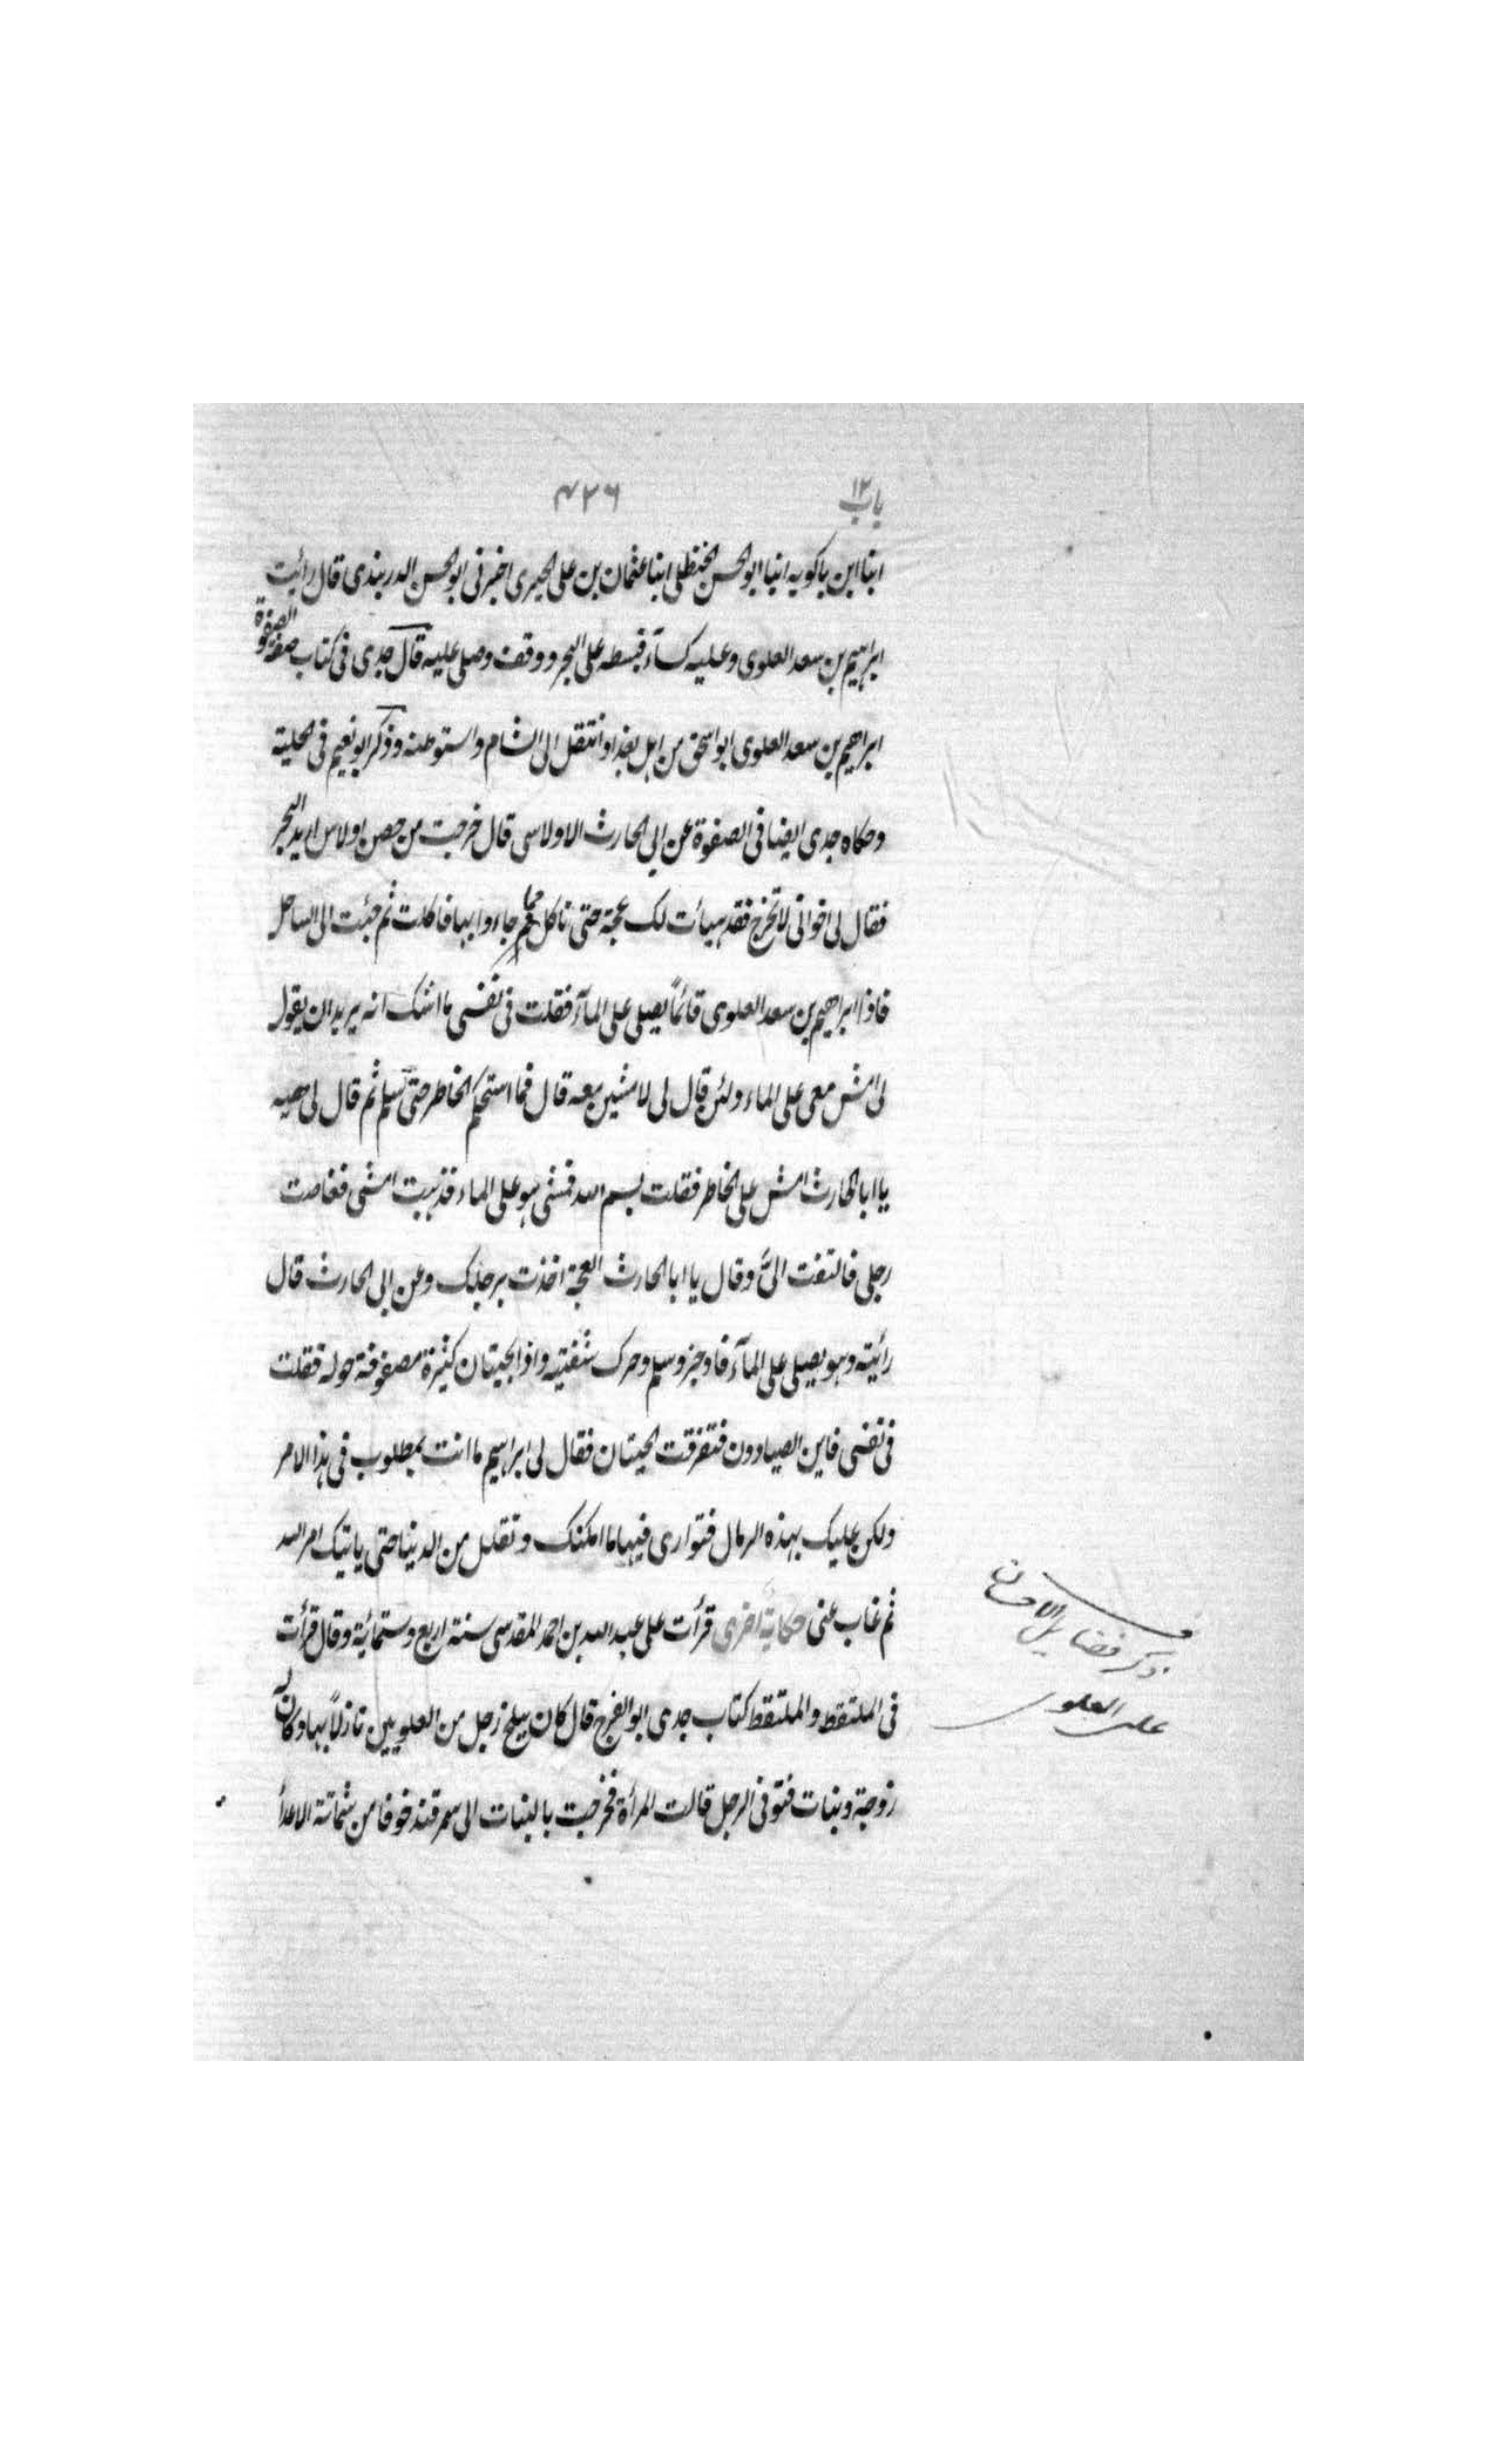 باب ١٢
٤٢٦
انبا ابن باكويه انبا ابو الحسن الحنظلى انبا عثمان بن على الحيرى اخبرنى ابو الحسن الدربندى قال رأيت
ابراهيم بن سعد العلوى وعليه كسآء فبسطه على البحر ووقف وصلى عليه قال جدى فى كتاب صفة الصفوة
ابراهيم بن سعد العلوى ابو اسحق من اهل بغداد انتقل الى الشام واستوطنه وذكر ابو نعيم فى الحلية
وحكاه جدى ايضا فى الصفوة عن ابى الحارث الاولاسى قال خرجت من حصن اولاس اريد البحر
فقال لى اخوانى لا تخرج فقد هيأت لك عجة حتى تاكل جاءوا بها فاكلت ثم جئت الى الساحل
فاذا ابراهيم بن سعد العلوى قائماً يصلى على المآء فقلت فى نفسى ما اشك انه يريد ان يقول
لى امش معى على الماء ولئن قال لى لامشين معه قال فما استحكم الخاطر حتى سلم ثم قال لى هيه
يا ابا الحارث امش على الخاطر فقلت بسم الله فمشى هو على الماء فذهبت امشى فغاصت
رجلى فالتفت الىَّ وقال يا ابا الحارث العجة اخذت برجلك وعن ابى الحارث قال
رأيته وهو يصلى على المآء فاوجز وسلم وحرك شفتيه واذا بحيتان كثيرة مصفوفة حوله فقلت
فى نفسى فاين الصيادون فتفرقت الحيتان فقال لى ابراهيم ما انت بمطلوب فى هذا الامر
ولكن عليك بهذه الرمال فتوارى فيها ما امكنك وتقلل من الدينا حتى ياتيك امر الله
ثم غاب عنى حكاية اخرى قرأت على عبد الله بن احمد المقدسى سنة اربع وستمائة وقال قرأت
فى الملتقط والملتقط كتاب جدى ابو الفرج قال كان ببلخ رجل من العلويين نازلاً بها وكان له
زوجة وبنات فتوفى الرجل قالت المرأة فخرجت بالبنات الى سمرقند خوفا من شماتة الاعدأ
ذكر فضايل الاحسان
على العلوى